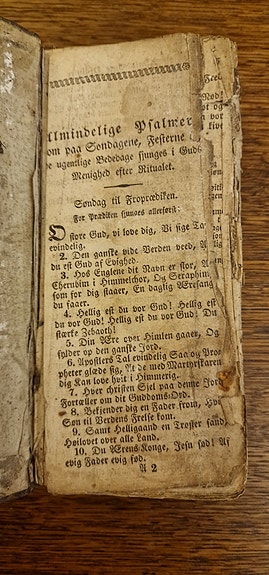 llmindelige Psalmer
om paa Søndagene, Festerne
e ugentlige Bededage sjunges i Guds
Menighed efter Ritualet.
Søndag til Froprædiken.
Før Prædiken sjunges allerførst:
O store Gud, vi love dig, Vi sige Ta
evindelig.
2. Den ganske vide Verden veed, A
du est Gud af Evighed.
3. Hos Englene dit Navn er stor, A
Cherubim i Himmelchor, Og Seraphim
som for dig staaer, En daglig Æresang
du faaer.
4. Hellig est du vor Gud! Hellig est
du vor Gud! Hellig est du vor Gud! Du
stærke Zebaoth!
5. Din Ære over Himlen gaaer, Og
fylder op den ganske Jord.
6. Apostlers Tal evindelig Saa og Pro
pheter glæde sig, At de med Martyrskaren
dig Kan love høit i Himmerig.
7. Hver christen Siel paa denne Jord
Fortæller om dit Guddoms-Ord.
8. Bekjender dig en Fader from, Hvo
Søn til Verdens Frelse kom.
9. Samt Helligaand en Trøster sand
Høilovet over alle Land.
10. Du Ærens Konge, Jesu sød! Af
evig Fader evig fød.
A 2